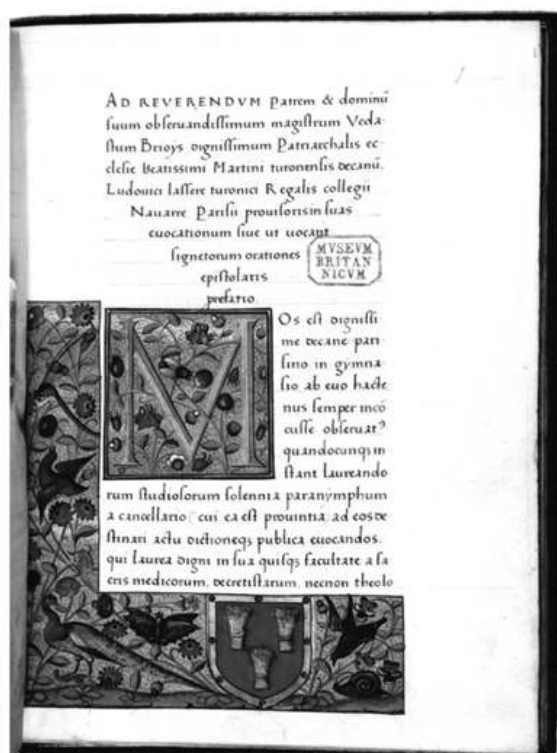 AD REVERENDVM Patrem & dominū
suum obseruandissimum magistrum Veda-
stum Brioys dignissimum Patriarchalis ec-
clesie beatissimi Martini turonensis decanū.
Ludouici lassere turonici Regalis collegii
Nauarre Parisii prouisoris in suas
euocationum siue ut uocant
signetorum orationes
epistolaris
prefatio
MVSEVM
BRITAN
NICVM
MOs est dignissi
me decane pari
sino in gymna
sio ab euo hacte
nus semper incō
cusse obseruatꝰ
quandocunqꝫ in
stant Laureando
rum studiosorum solennia paranymphum
a cancellario (cui ea est prouintia) ad eos de
stinari actu dictioneqꝫ publica euocandos.
qui laurea digni in sua quisqꝫ facultate a sa
cris medicorum. decretistarum. necnon theolo